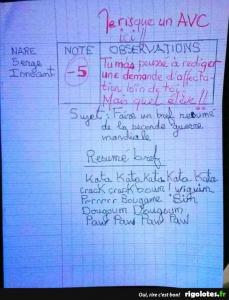 Je risque un AVC
ici !!
NARE
Serge
Innocent
NOTE
-5
OBSERVATIONS
Tu m'as poussé à rediger
une demande d'affecta-
tion loin de toi.
Mais quel élève !!
Sujet : Faire un bref resumé
de la seconde guerre
mondiale
Resumé bref
Kata Kata Kata Kata Kata
crack crack boum !
Prrrrrr Bougame
Dougoum Dougoum
Paw Paw Paw Paw
Oui, rire c'est bon! rigolotes.fr